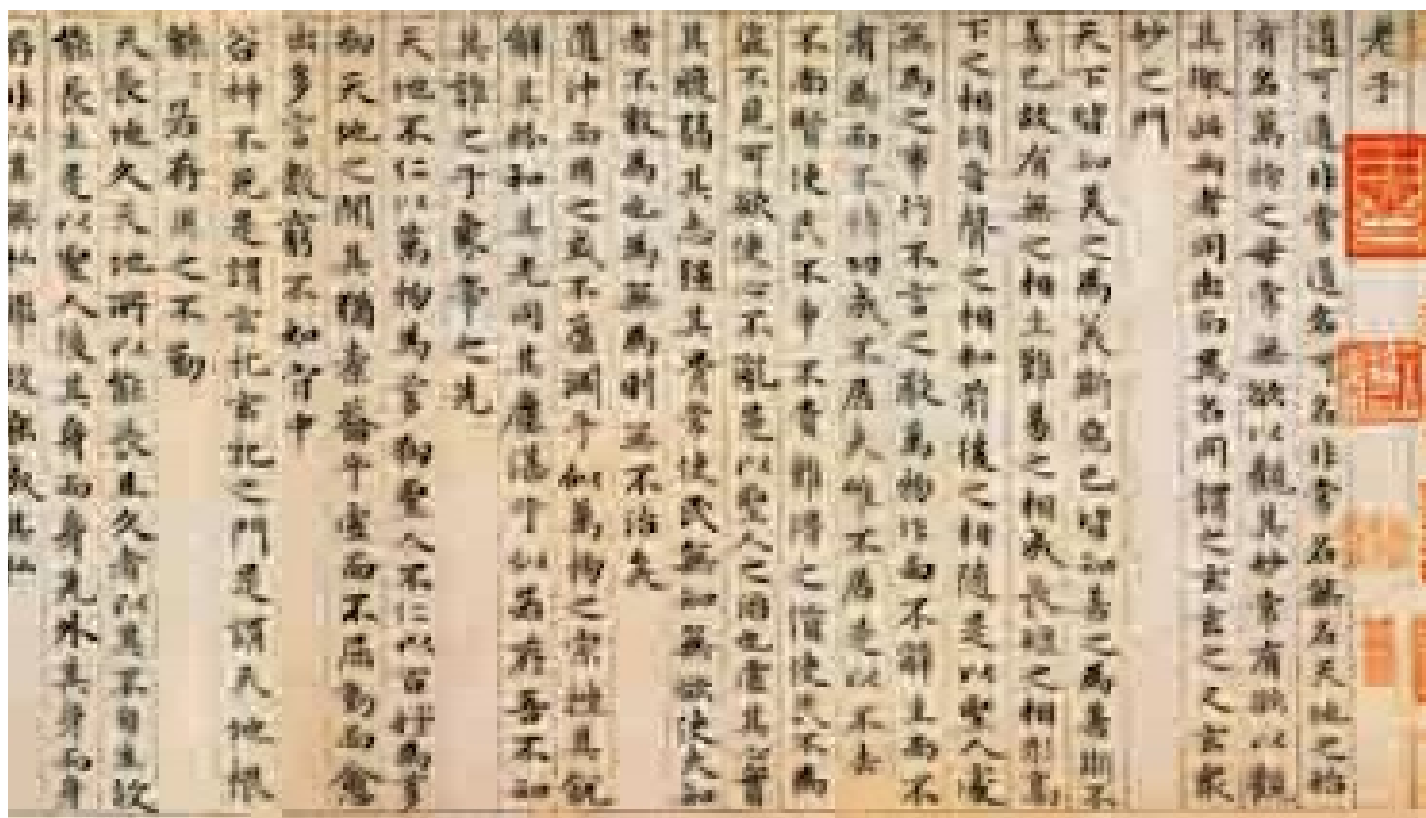 老子
道可道非常道名可名非常名無名天地之始
有名萬物之母常無欲以觀其妙常有欲以觀
其徼此兩者同出而異名同謂之玄玄之又玄衆
妙之門
天下皆知美之為美斯惡已皆知善之為善斯不
善已故有無之相生難易之相成長短之相形高
下之相傾音聲之相和前後之相隨是以聖人處
無為之事行不言之教萬物作而不辭生而不
有為而不恃功成不居夫唯不居是以不去
不尚賢使民不爭不貴難得之貨使民不為
盜不見可欲使心不亂是以聖人之治也虛其心實
其腹弱其志強其骨常使民無知無欲使夫知
者不敢為也為無為則無不治矣
道沖而用之或不盈淵乎似萬物之宗挫其銳
解其紛和其光同其塵湛兮似若存吾不知
其誰之子象帝之先
天地不仁以萬物為芻狗聖人不仁以百姓為芻
狗天地之間其猶橐籥乎虛而不屈動而愈
出多言數窮不如守中
谷神不死是謂玄牝玄牝之門是謂天地根
綿綿若存用之不勤
天長地久天地所以能長且久者以其不自生故
能長生是以聖人後其身而身先外其身而身
存非以其無私耶故能成其私